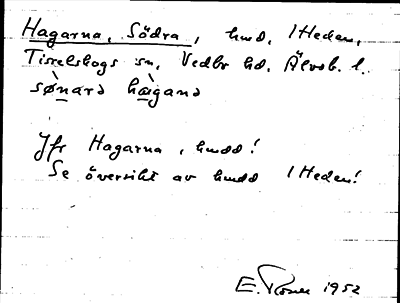 Hagarna, Södra, hmd. 1 Heden,
Tisselskogs sn, Vedbo hd. Älvsb. l.
sø̀narə hàganə
Jfr Hagarna, hmdd!
Se översikt av hmdd 1 Heden!
E. 1952